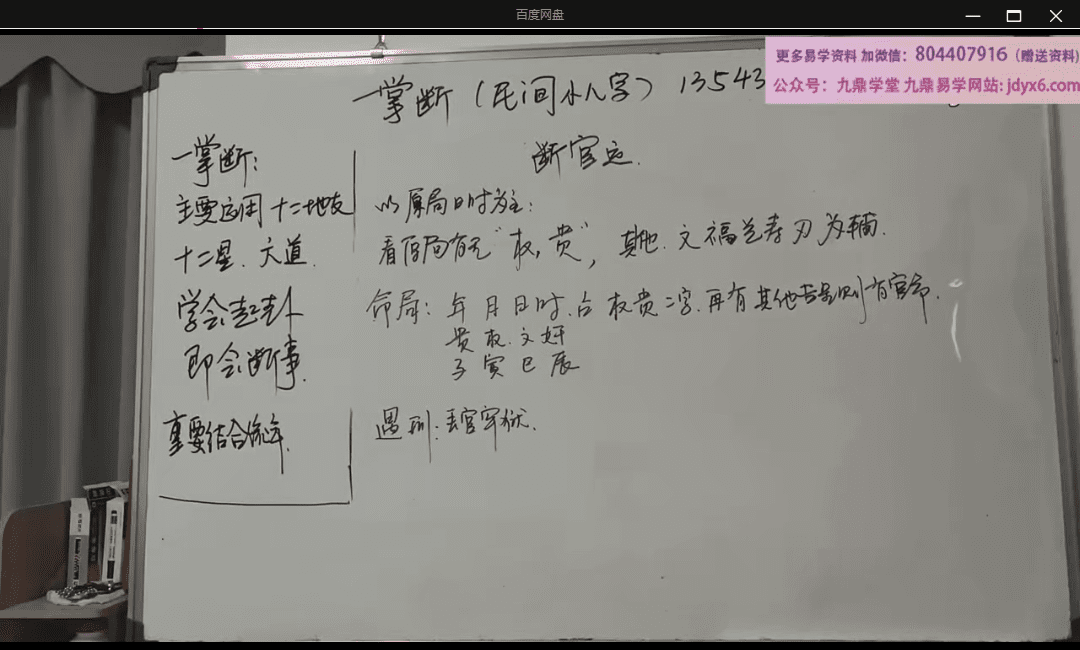 百度网盘
更多易学资料 加微信：804407916（赠送资料）
公众号：九鼎学堂 九鼎易学网站: jdyx6.com
一掌断（民间小八字）13543
断官运.
一掌断：
主要应用十二地支
十二星.六道.
学会起卦
即会断事.
重要结合流年.
以原局日时为主：
看原局有无“权，贵”，其他.文福艺寿刃为辅.
命局：年月日时.占权贵二字.再有其他吉星则有官命.
贵权.文奸
子寅巳辰
遇刑：丢官牢狱.